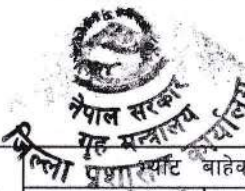 नेपाल सरकार
गृह मन्त्रालय
जिल्ला प्रशासन कार्यालय
भ्याट बाहेक